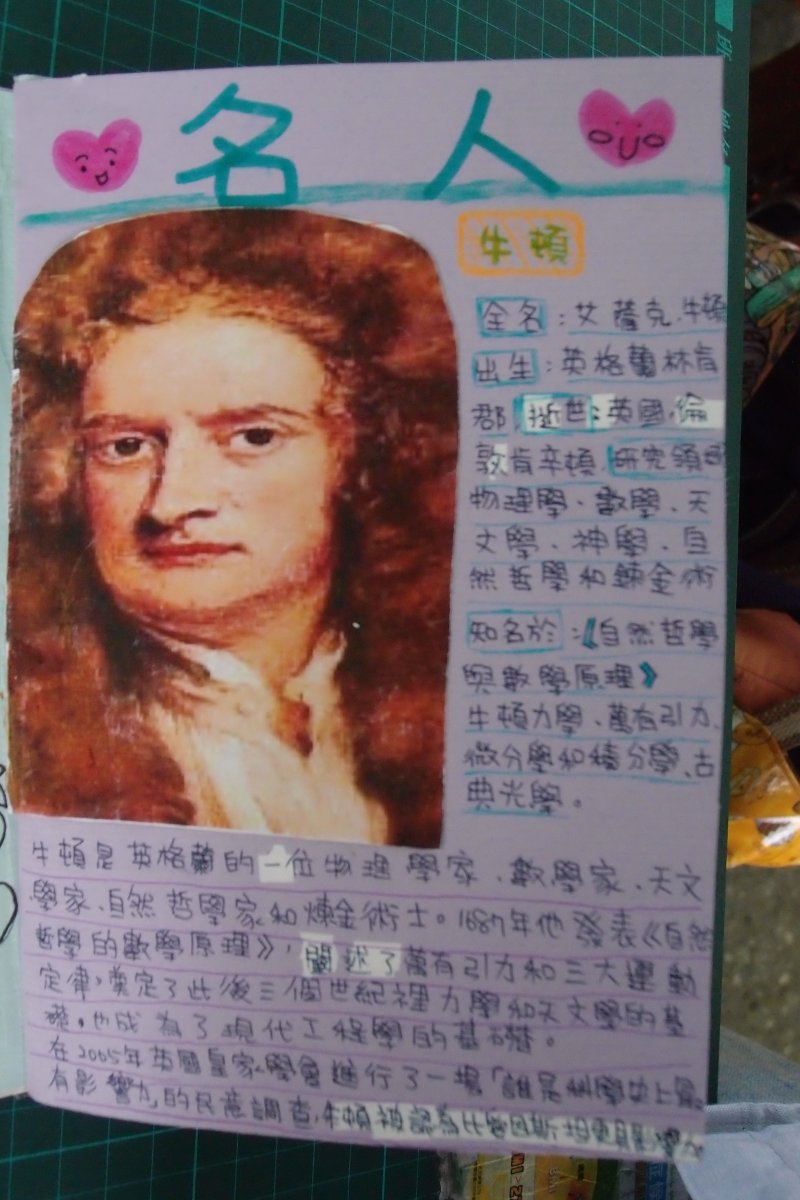 名人
牛頓
全名：艾薩克.牛頓
出生：英格蘭林肯
郡.逝世：英國.倫
敦肯辛頓.研究領域
物理學、數學、天
文學、神學、自
然哲學和鍊金術
知名於：《自然哲學
與數學原理》
牛頓力學、萬有引力、
微分學和積分學、古
典光學。
牛頓是英格蘭的一位物理學家、數學家、天文
學家、自然哲學家和煉金術士。1687年他發表《自然
哲學的數學原理》，闡述了萬有引力和三大運動
定律，奠定了此後三個世紀裡力學和天文學的基
礎，也成為了現代工程學的基礎。
在2005年英國皇家學會進行了一場「誰是科學史上最
有影響力」的民意調查，牛頓被認為比愛因斯坦更具影響力